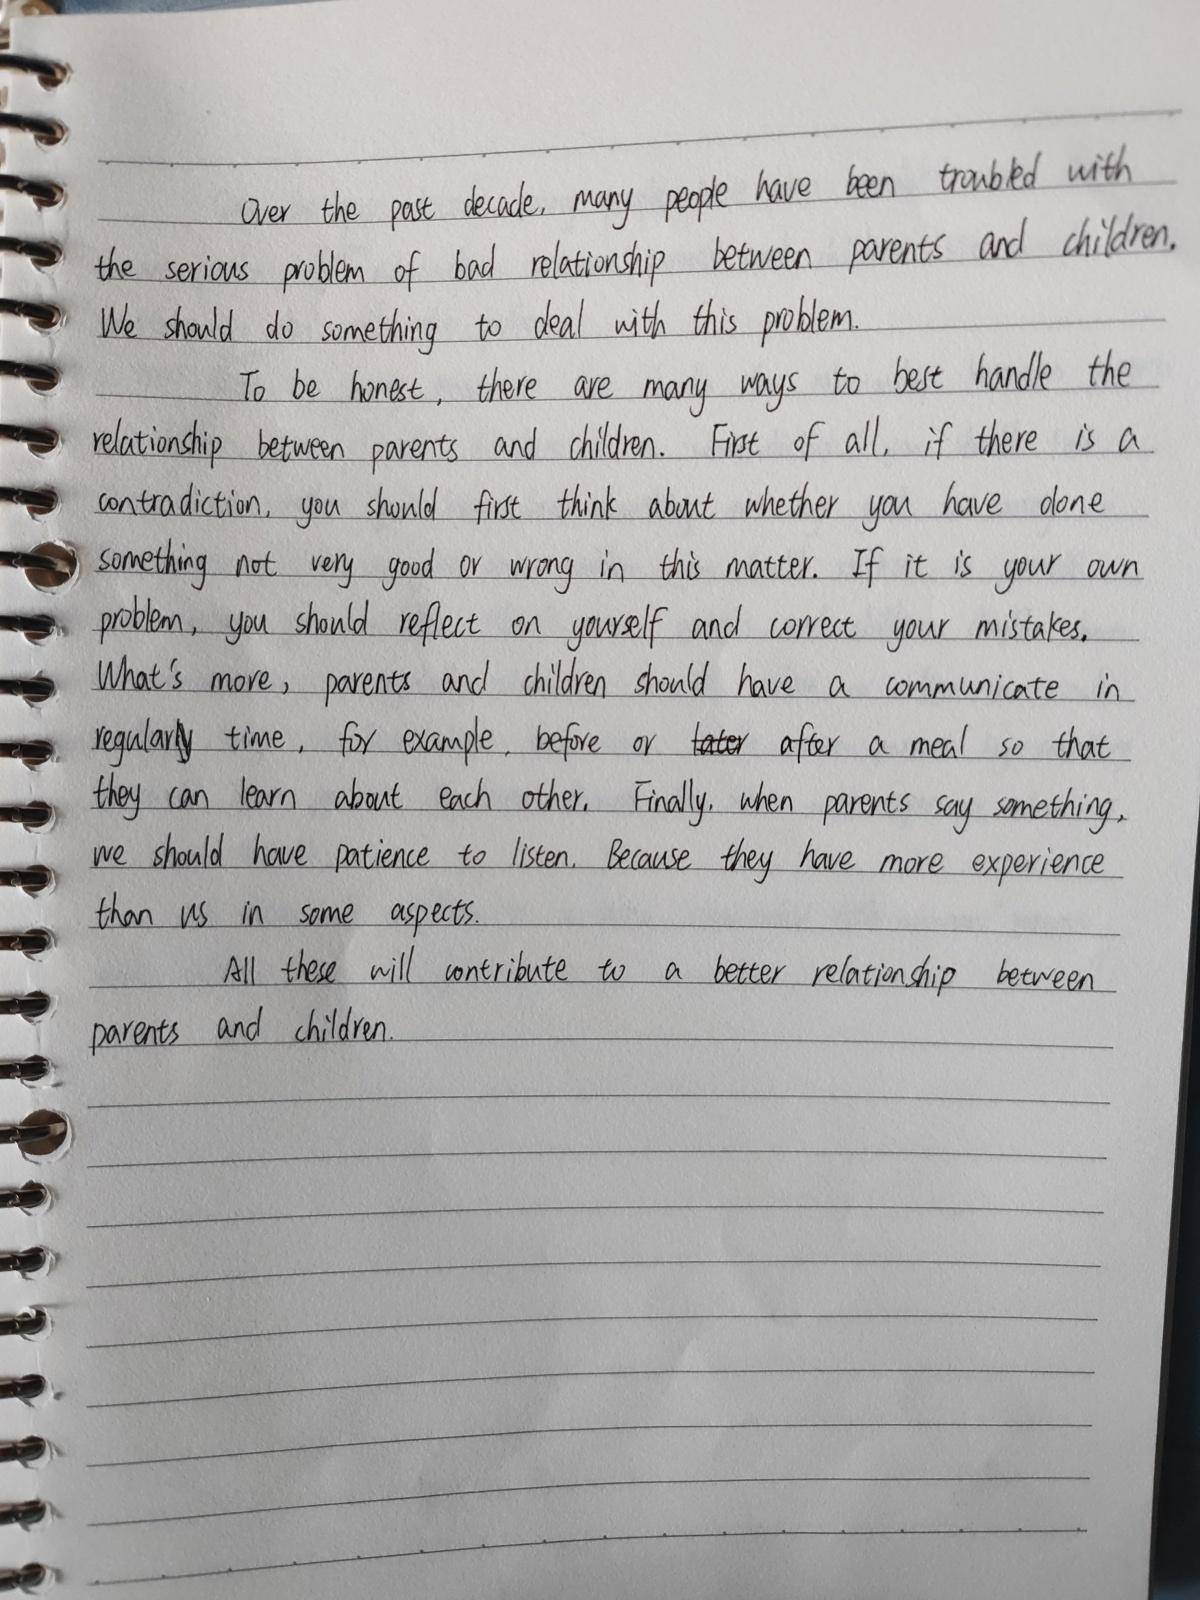 Over the past decade, many people have been troubled with
the serious problem of bad relationship between parents and children.
We should do something to deal with this problem.
To be honest, there are many ways to best handle the
relationship between parents and children. First of all, if there is a
contradiction, you should first think about whether you have done
something not very good or wrong in this matter. If it is your own
problem, you should reflect on yourself and correct your mistakes.
What's more, parents and children should have a communicate in
regularly time, for example, before or later after a meal so that
they can learn about each other. Finally, when parents say something,
we should have patience to listen. Because they have more experience
than us in some aspects.
All these will contribute to a better relationship between
parents and children.